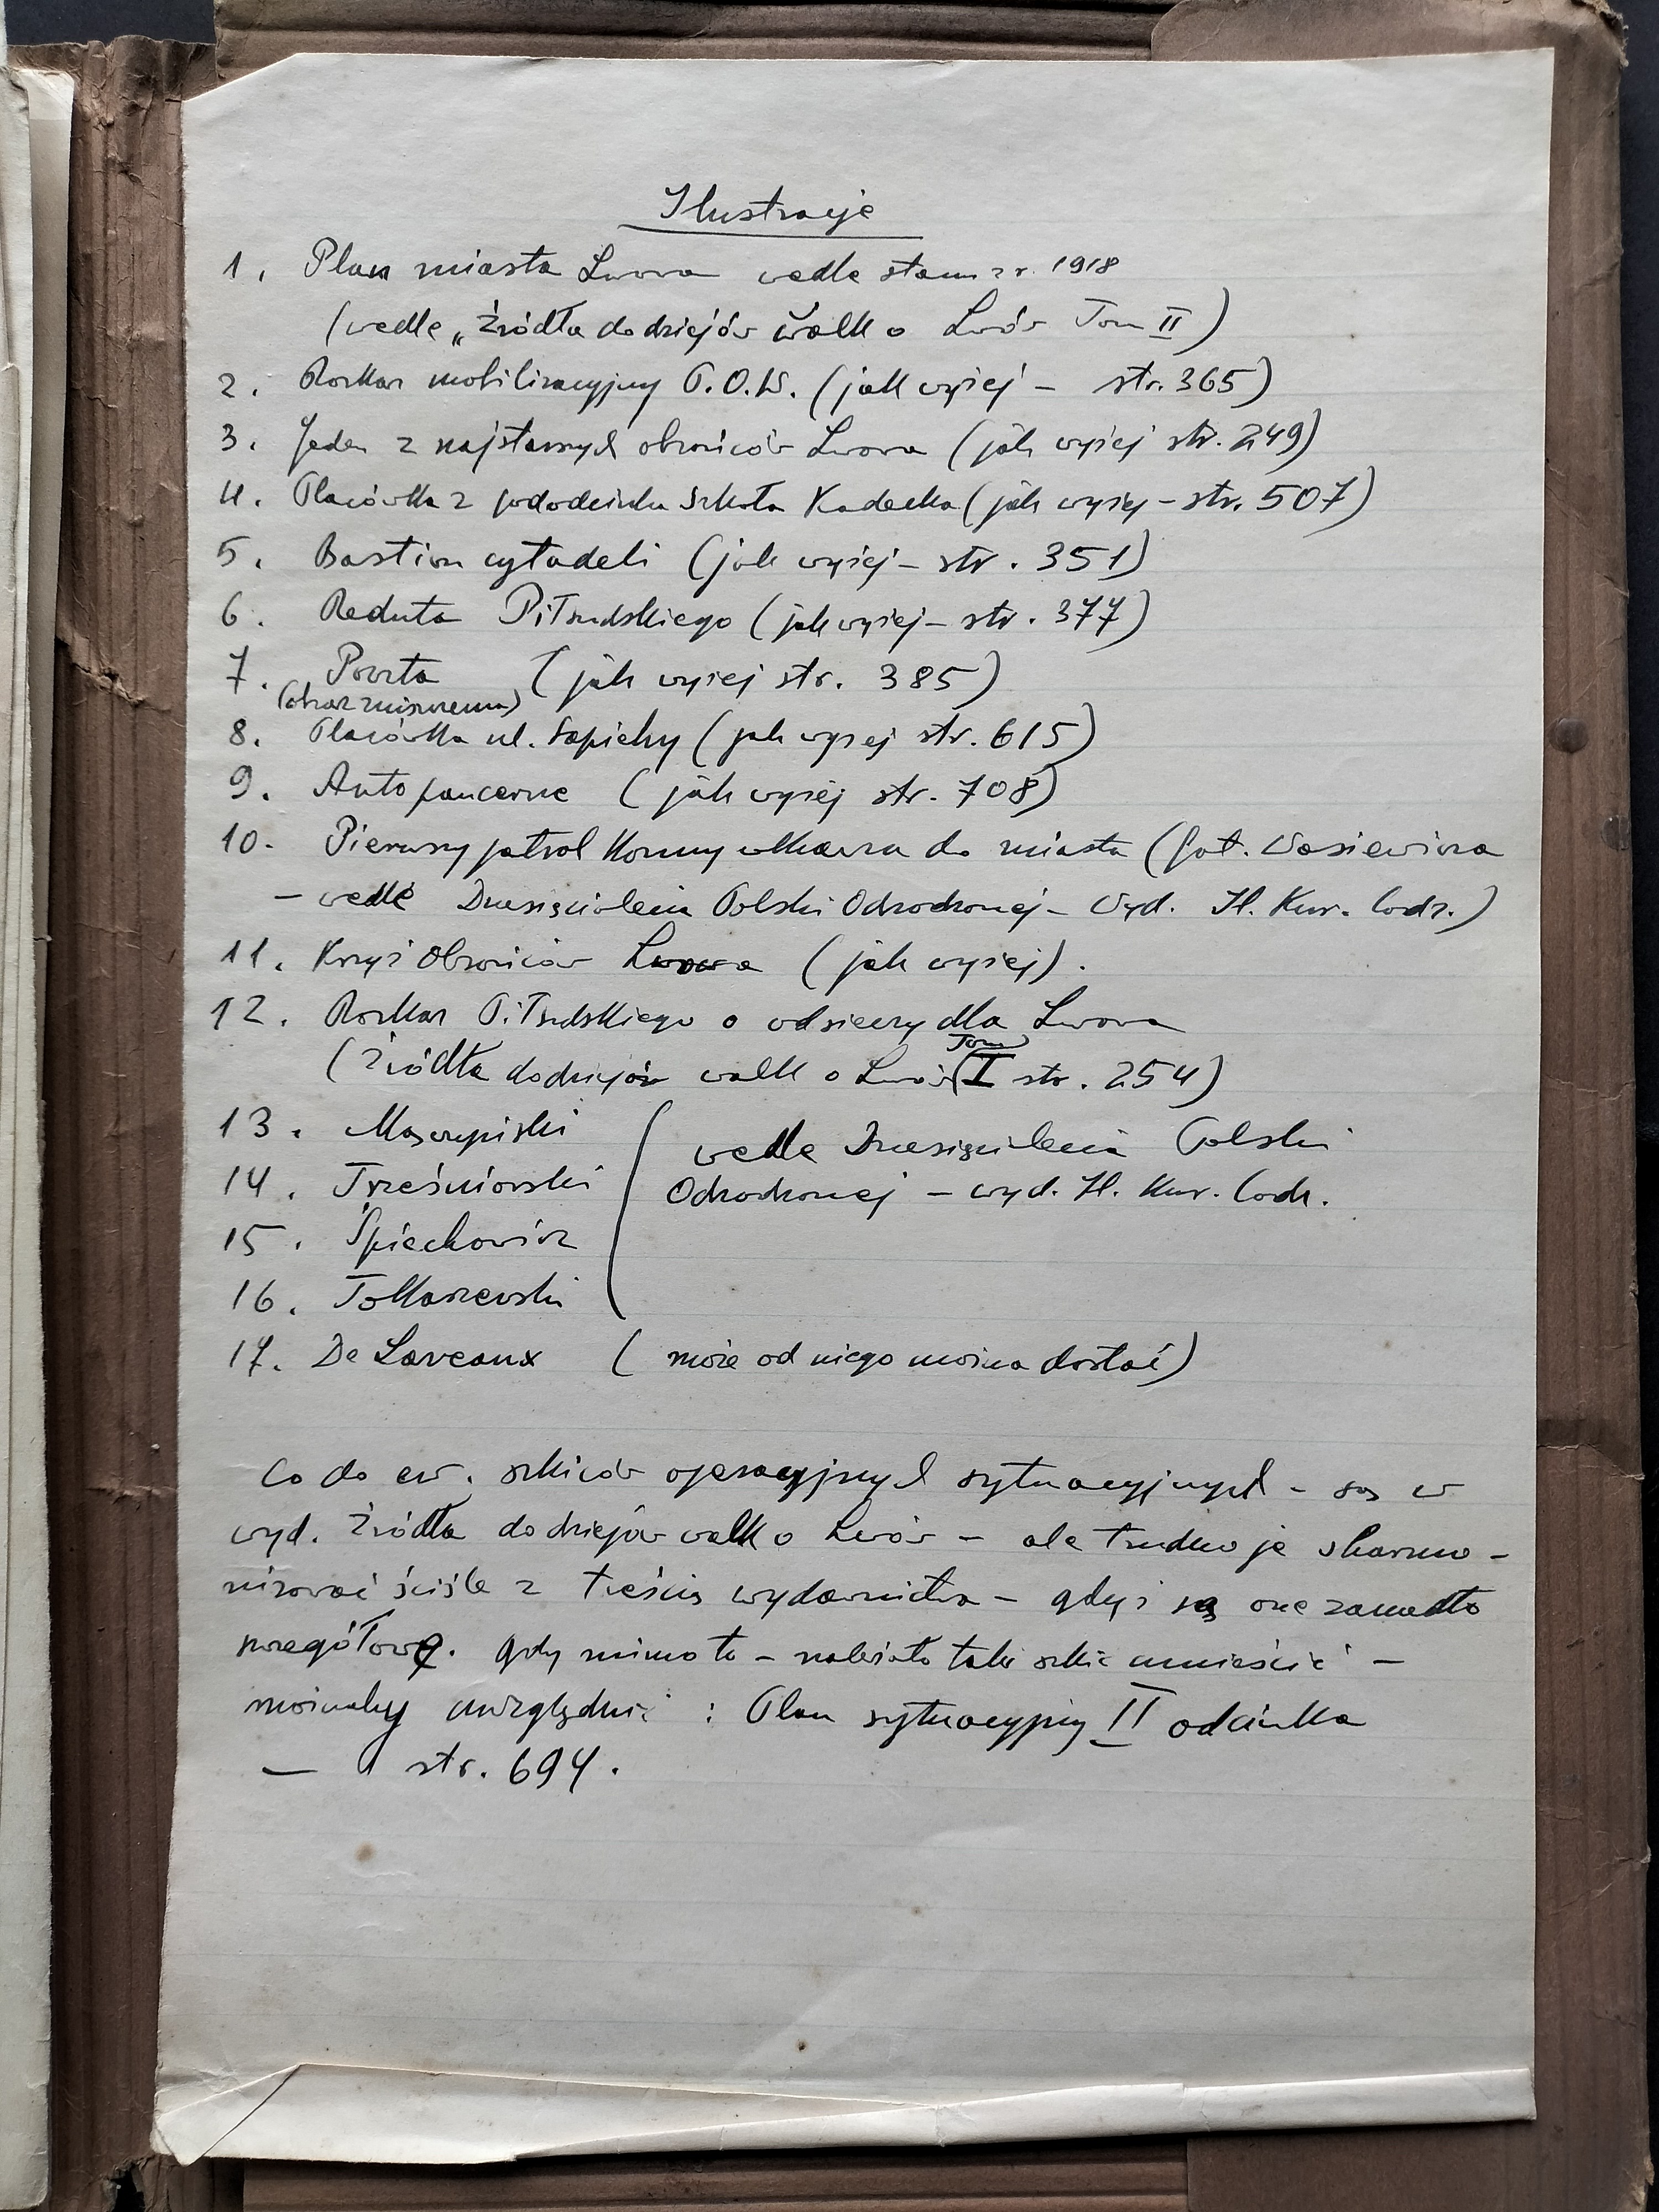 Ilustracje
1. Plan miasta Lwowa wedle stanu z r. 1918
(wedle „Źródła do dziejów walk o Lwów Tom II)
2. Rozkaz mobilizacyjny P.O.W. (jak wyżej – str. 365)
3. Jeden z najstarszych obrońców Lwowa (jak wyżej str. 249)
4. Placówka z pododcinku Szkoła Kadecka (jak wyżej – str. 507)
5. Bastion cytadeli (jak wyżej – str. 351)
6. Reduta Piłsudskiego (jak wyżej – str. 377)
7. Poczta (jak wyżej str. 385)
(obraz zniszczenia)
8. Placówka ul. Sapiehy (jak wyżej str. 615)
9. Auto pancerne (jak wyżej str. 708)
10. Pierwszy patrol konny wkracza do miasta (fot. Wasiewicza
– wedle Dziesięciolecia Polski Odrodzonej – Wyd. Il. Kur. Codz.)
11. Krzyż Obrońców Lwowa (jak wyżej).
12. Rozkaz Piłsudskiego o odsieczy dla Lwowa
(Źródła do dziejów walk o Lwów (Tom I str. 254)
13. Mączyński
14. Trześniowski
15. Śpiechowicz
16. Tokarzewski
wedle Dziesięciolecia Polski
Odrodzonej – wyd. Il. Kur. Codz.
17. De Laveaux (może od niego można dostać)
Co do ew. szkiców operacyjnych sytuacyjnych – są w
wyd. Źródła do dziejów walk o Lwów – ale trudno je sharmo-
nizować ściśle z treścią wydawnictwa – gdyż są one zanadto
szczegółowe. Gdy mimo to – należało taki szkic umieścić –
możnaby uwzględnić : Plan sytuacyjny II odcinka
– str. 694.